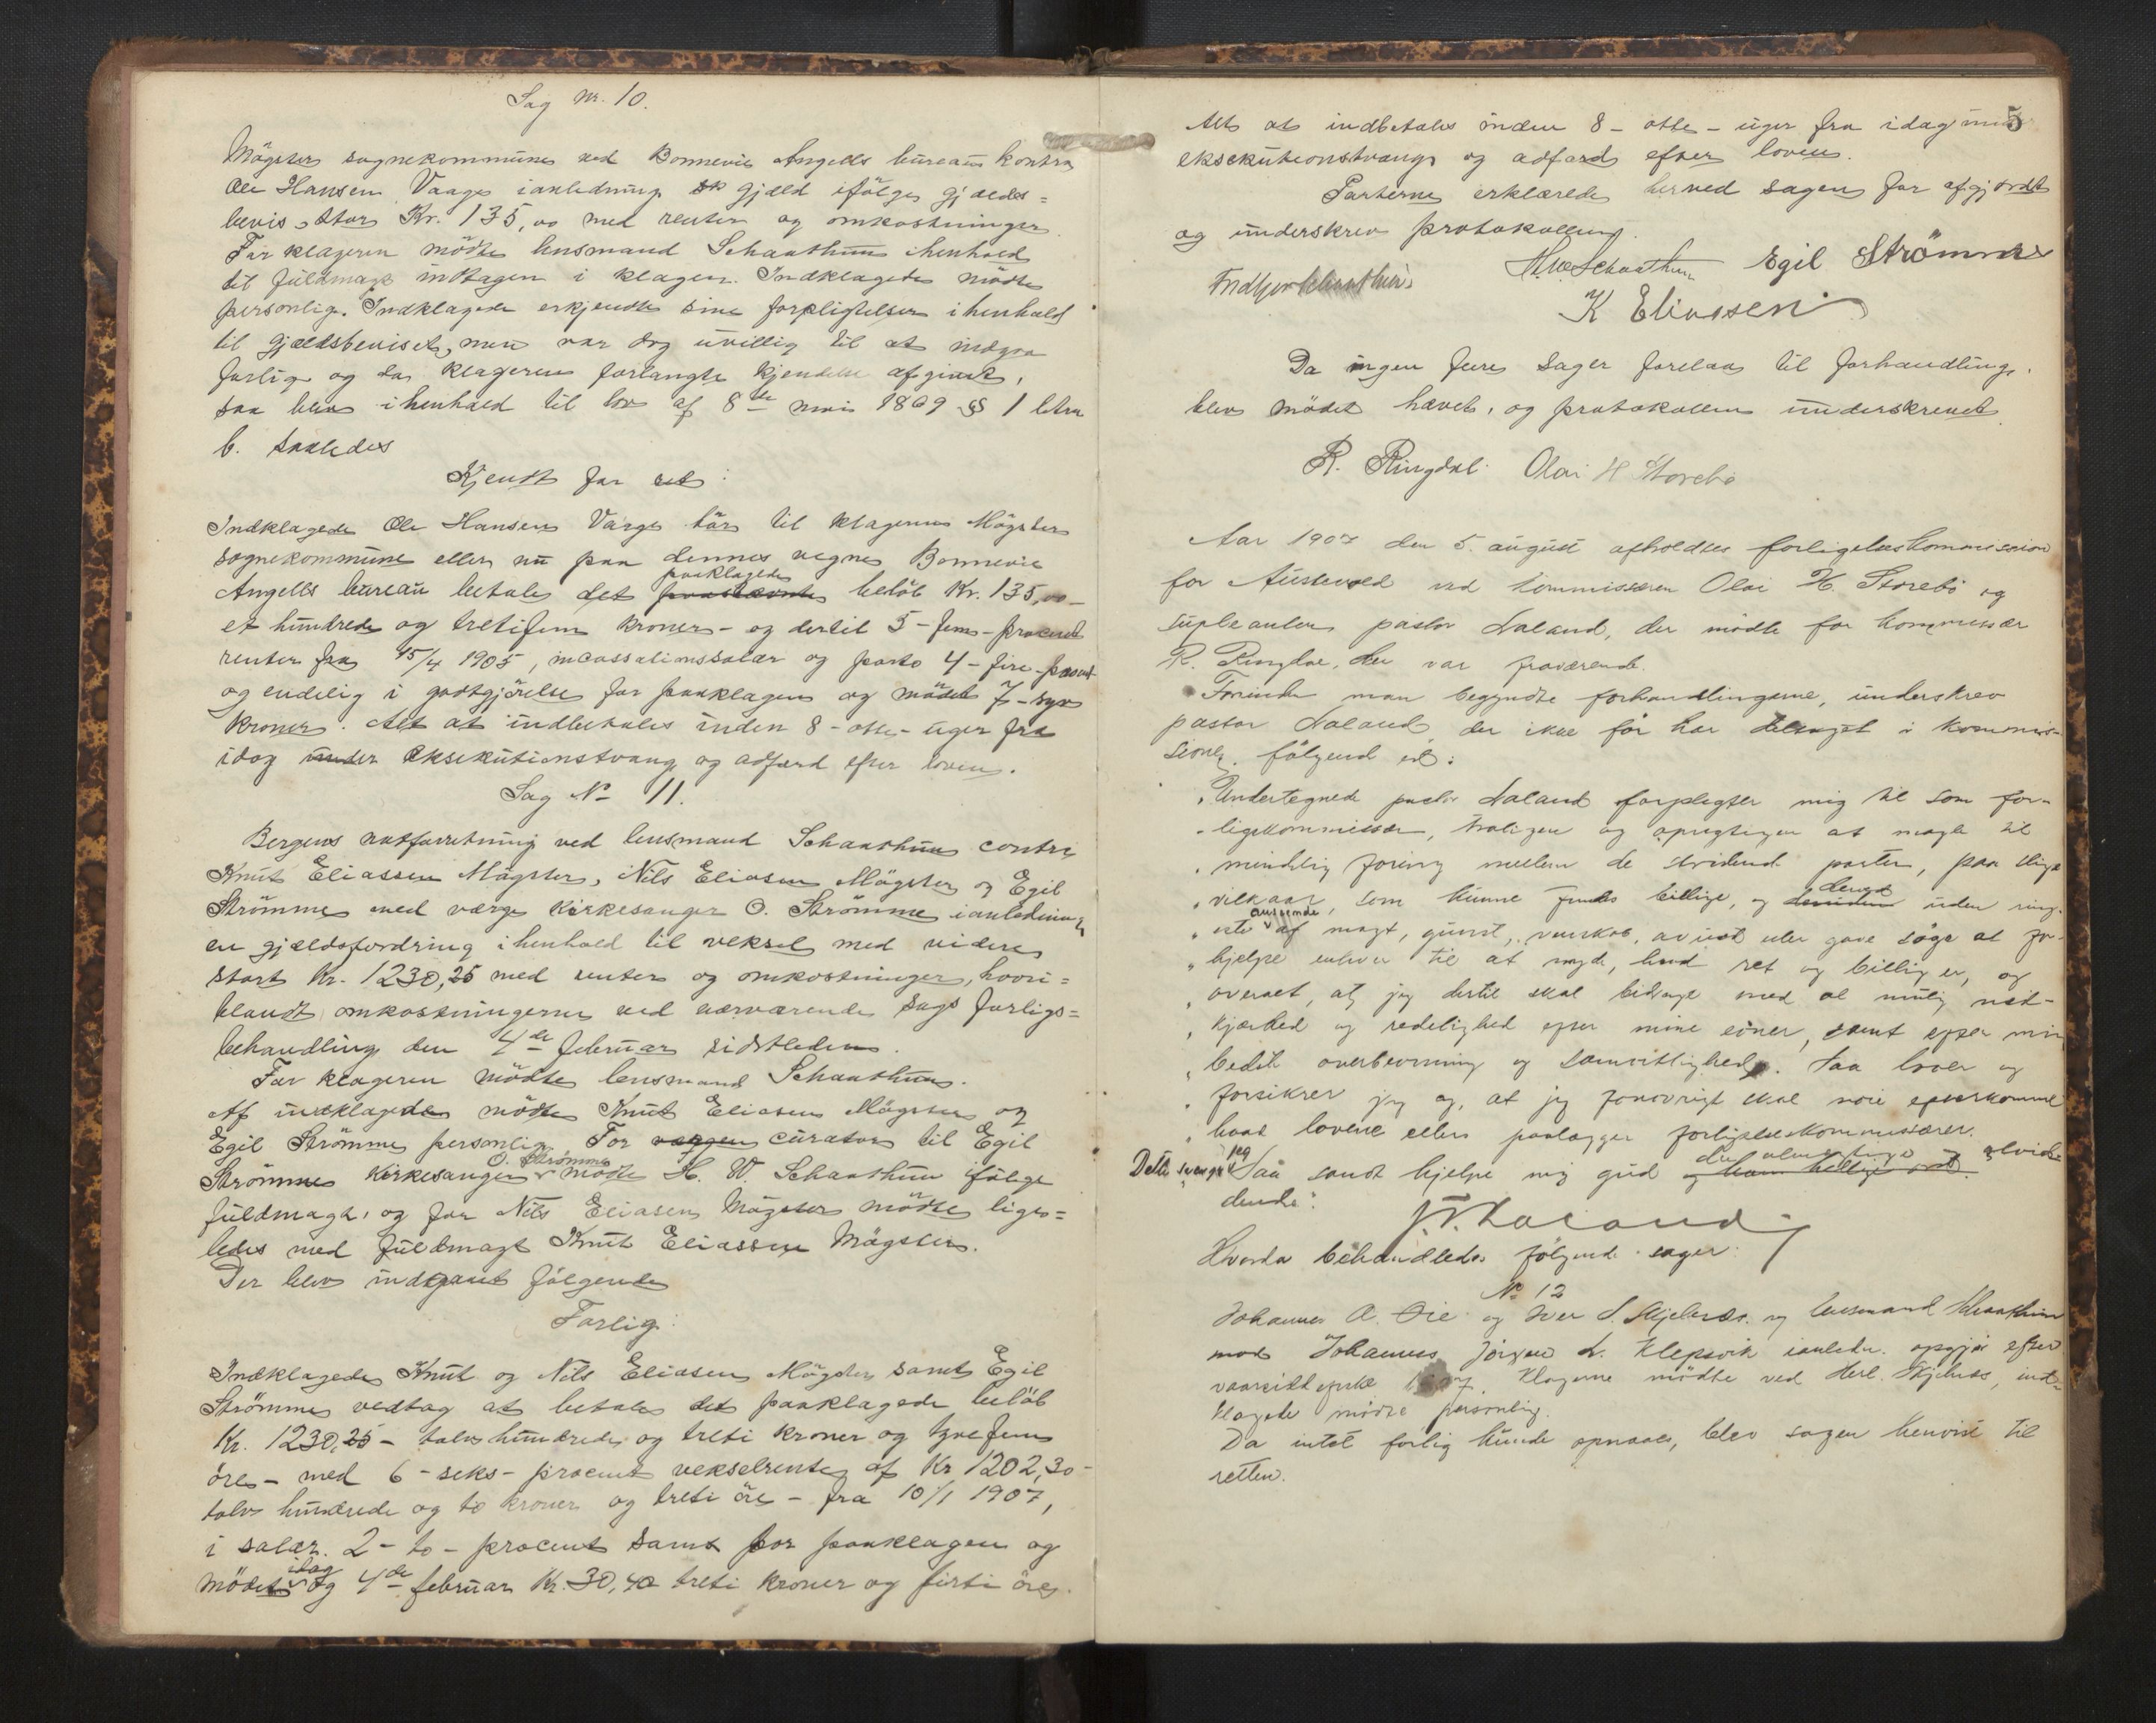 Sag nr. 10.
Mögster sognekommune ved Bonnevie Angells bureau kontra
Ole Hansen Vaage i anledning gjæld ifölge gjælds=
bevis stor Kr. 135,00 med renter og omkostninger.
For klageren mödte lensmand Schaathun i henhold
til fuldmagt indtagen i klagen. Indklagede mödte
personlig. Indklagede erkjendte sine forpligtelser i henhold
til gjældsbeviset, men var dog uvillig til at indgaa
forlig og da klageren forlangte kjendelse afgivet,
saa blev i henhold til lov af 8de mai 1869 § 1 litra
b. saaledes
Kjendt for ret:
Indklagede Ole Hansen Vaage bör til klageren Mögster
sognekommune eller nu paa dennes vegne Bonnevie
Angells bureau betale det paaklagede beløb Kr. 135,00 –
et hundrede og tretifem kroner – og dertil 5 – fem – procent
renter fra 15/4 1905, incassationssalær og porto 4 – fire – procent
og endelig i godtgjörelse for paaklagen og mödet 7 – syv
kroner. Alt at indbetales inden 8 – otte – uger fra
idag under eksekutionstvang og adfærd efter loven.
Sag No 11.
Bergens notforretning ved lensmand Schaathun contra
Knut Eliassen Mögster, Nils Eliasen Mögster og Egil
Strömme med værge kirkesanger O. Strömme i anledning
en gjældsfordring i henhold til veksel med videre
stort Kr. 1230,25 med renter og omkostninger, hvori=
blandt omkostningerne ved nærværende sags forligs=
behandling den 4de februar sidstleden.
For klageren mödte lensmand Schaathun.
Af indklagede mödte Knut Eliasen Mögster og
Egil Strömme personlig. For værgen curator til Egil
Strömme kirkesanger O. Strömme mödte H. W. Schaathun ifölge
fuldmagt, og for Nils Eliasen Mögster mödte lige=
ledes med fuldmagt Knut Eliassen Mögster.
Der blev indgaaet fölgende
Forlig:
Indklagede Knut og Nils Eliasen Mögster samt Egil
Strömme vedtog at betale det paaklagede belöb
Kr. 1230,25 – tolvhundrede og treti kroner og tyvefem
öre – med 6 – seks – procent vekselrente af Kr 1202,30 –
tolv hundrede og to kroner og treti öre – fra 10/1 1907,
i salær 2 – to – procent samt for paaklagen og
mödet idag og 4de februar Kr. 30,40 treti kroner og firti öre.
5
Alt at indbetales inden 8 – otte – uger fra idag under
eksekutionstvang og adfærd efter loven.
Parterne erklærede herved sagen for afgjordt
og underskrev protokollen.
H W Schaathun Egil Strömme
K Eliassen
Da ingen flere sager forelaa til forhandling,
blev mödet hævet, og protokollen underskrevet.
R. Ringdal. Olai H Storebö
Aar 1907 den 5. august afholdtes forligelseskommission
for Austevold ved kommissæren Olai H. Storebö og
supleanten pastor Naland, der mödte for kommissær
R. Ringdal, der var fraværende.
Forinden man begyndte forhandlingerne, underskrev
pastor Naland, der ikke för har deltaget i kommis-
sionen, fölgende ed:
"Undertegnede pastor Naland forpligter mig til som for-
"ligskommissær, troligen og oprigtigen at mægle til
"mindelig forening mellem de stridende parter, paa slige
"vilkaar, som kunne findes billige, og derved uden ring-
"este anseende af magt, gunst, venskab, avind eller gave söge at for-
"hjelpe enhver til at nyde, hvad ret og billig er, og
"overalt, at jeg dertil skal bidrage med al mulig nid-
"kjærhed og redelighed efter mine evner, samt efter min
"bedste overbevisning og samvittighed. Saa lover og
"forsikrer jeg og, at jeg forövrigt skal nöie efterkomme
"hvad lovene ellers paalægger forligelseskommissærer.
Dette sverger jeg Saa sandt hjelpe mig gud den almægtige og hans hellige ord alvi-
dende".
Naland
Hvorda behandledes fölgende sager:
No 12
Johannes A. Öie og Iver S. Skjelnæs ved lensmand Schaathun
mod Johannes Jörgen L. Klepsvik i anledn. opgjör efter
vaarsildfiske 1907. Klagerne mödte ved Herl. Skjelnæs, ind-
klagede mödte personlig.
Da intet forlig kunde opnaaes, blev sagen henvist til
retten.